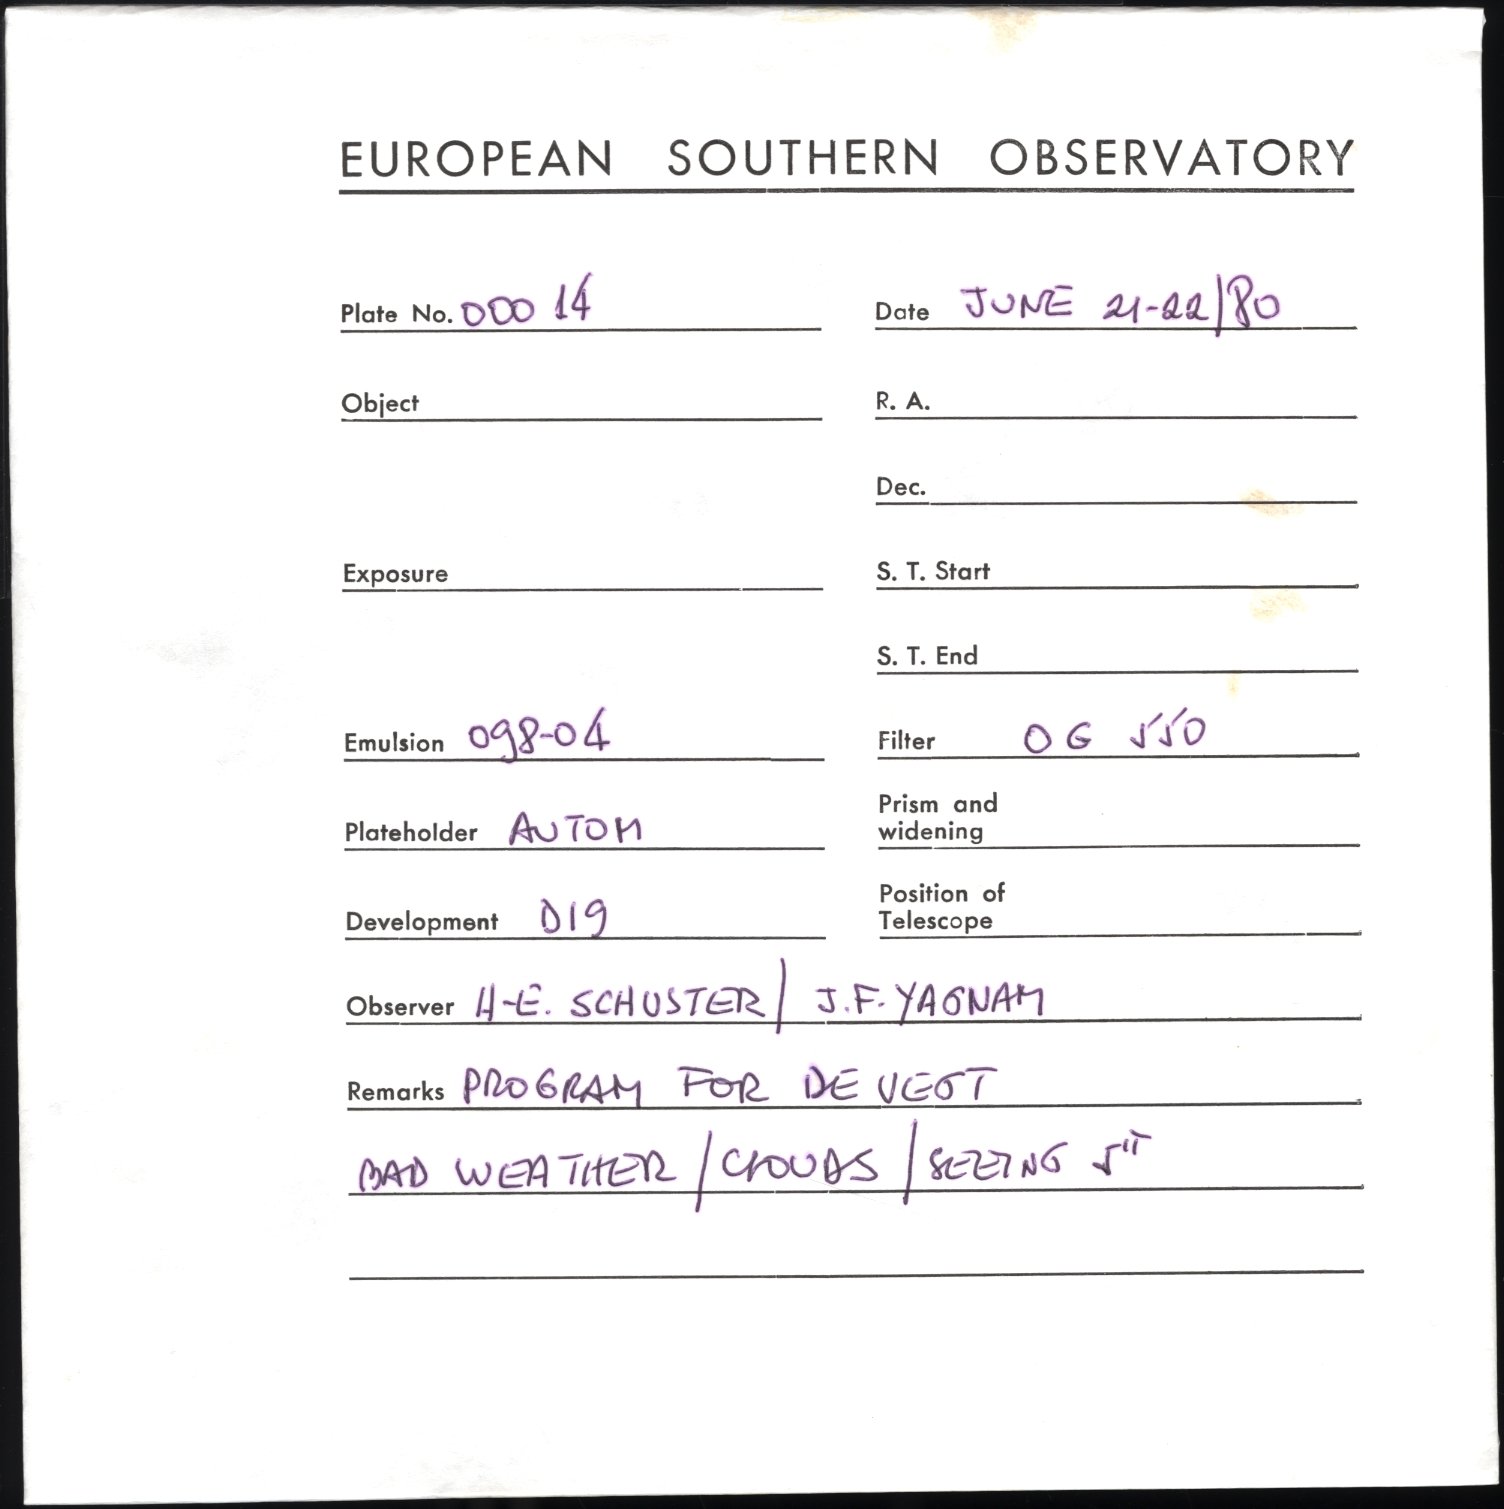 EUROPEAN SOUTHERN OBSERVATORY
Plate No. 000 14 Date JUNE 21-22/80
Object R. A.
Dec.
Exposure S. T. Start
S. T. End
Emulsion 098-04 Filter OG 550
Prism and
widening
Plateholder AUTOM
Position of
Telescope
Development D19
Observer H-E. SCHUSTER / J.F. YAGNAM
Remarks PROGRAM FOR DE VEGT
BAD WEATHER / CLOUDS / SEEING 5"